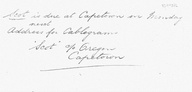 Scot is due at Capetown on Monday
next
Address for Cablegram
"Scot" c/o Crespin
Capetown